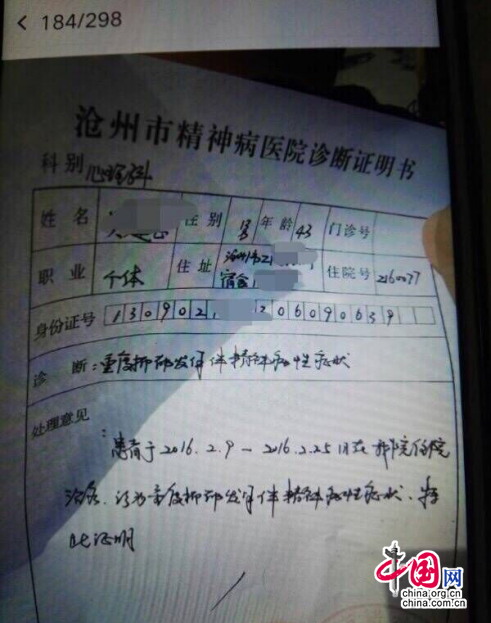 184/298
沧州市精神病医院诊断证明书
科别 心理科
姓名 性别 男 年龄 43 门诊号
职业 个体 住址 沧州市 宿舍 住院号 2160077
身份证号
诊断：重度抑郁发作伴精神病性症状
处理意见：
患者于2016.2.9－2016.2.25日在我院住院
治疗，诊为重度抑郁发作伴精神病性症状，特
此证明
中国网
china.org.cn
china.com.cn